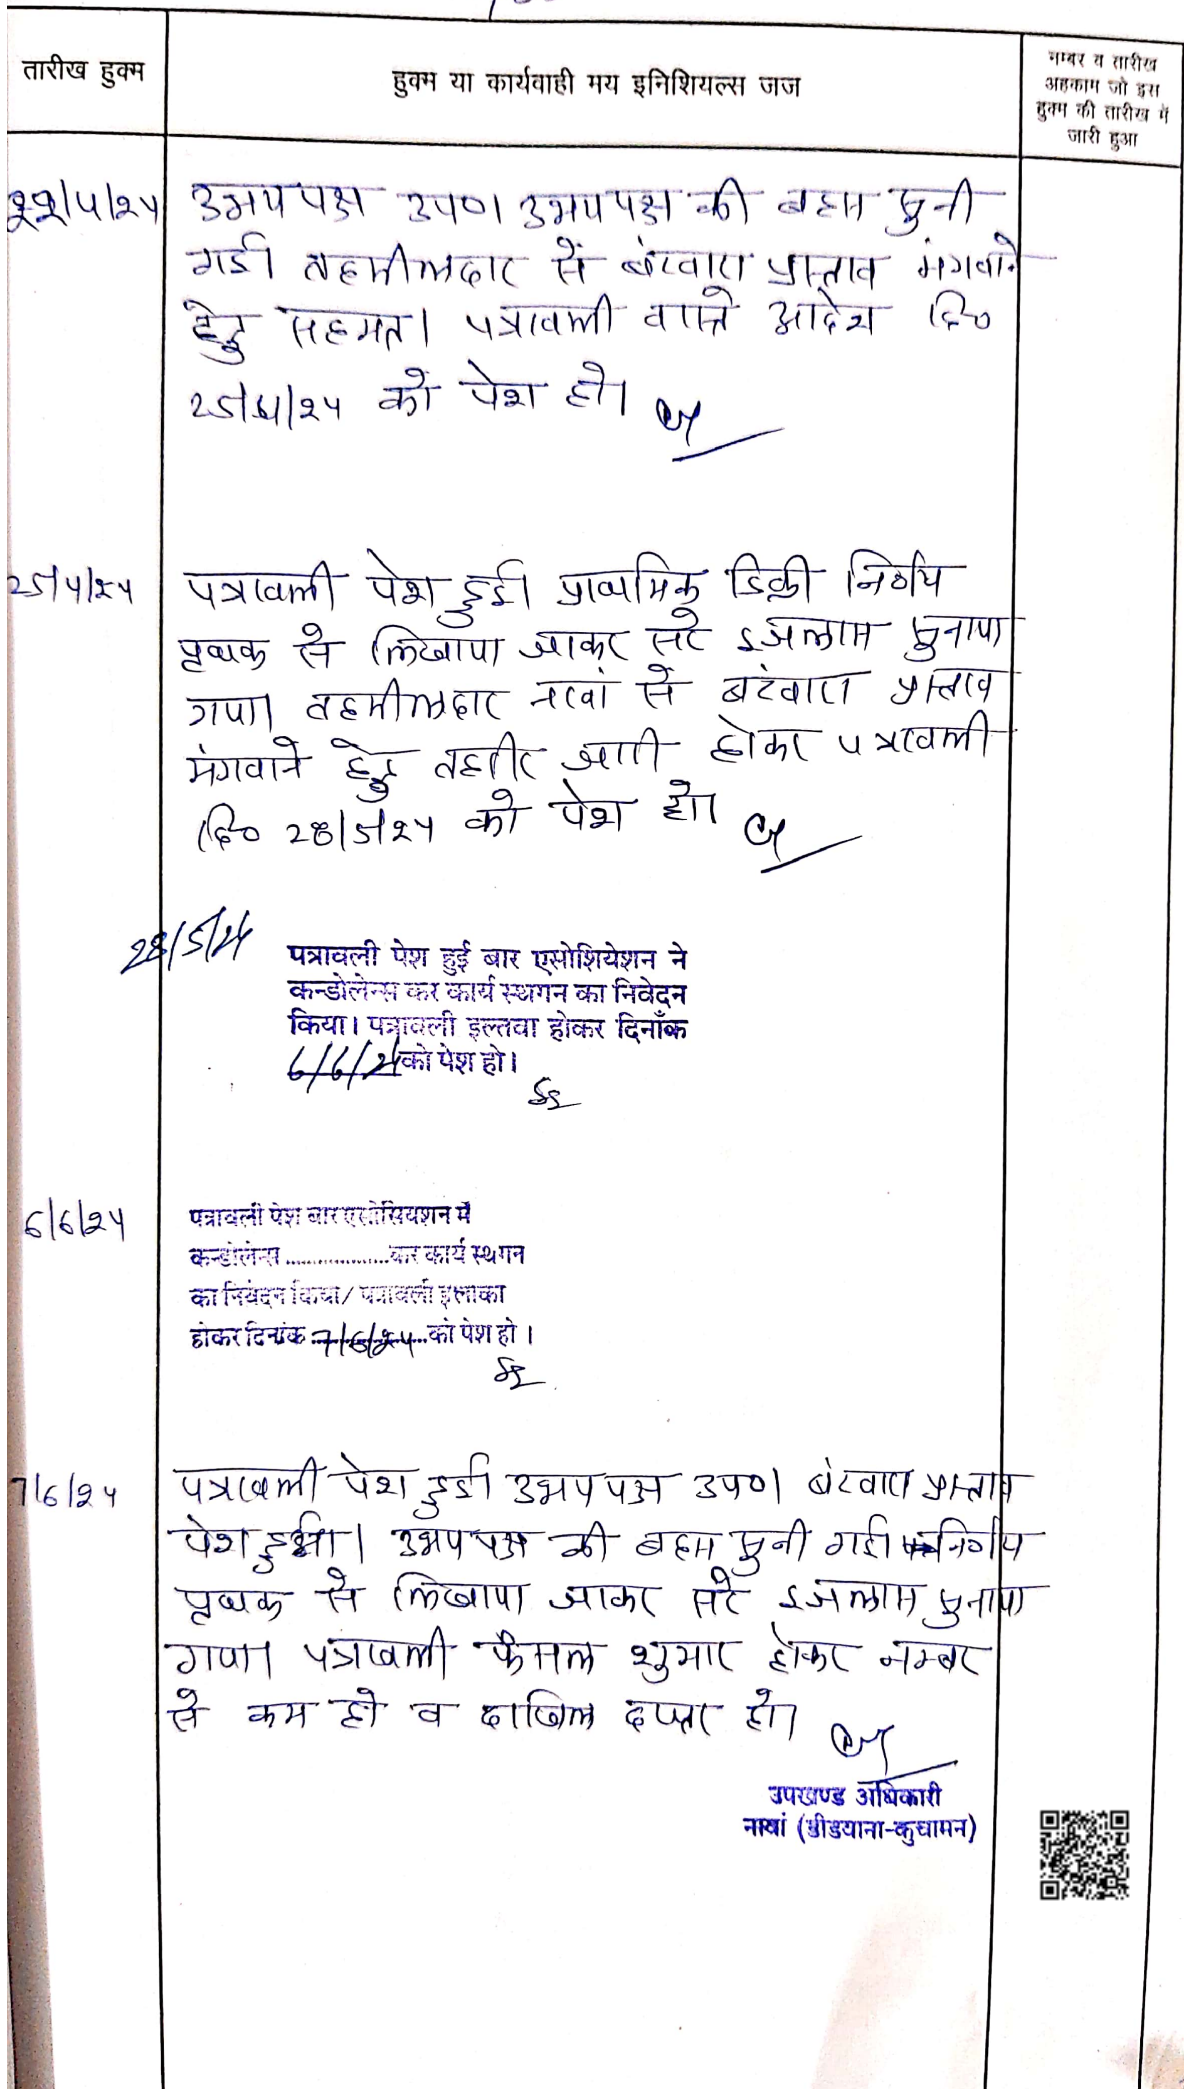 तारीख हुक्म
हुक्म या कार्यवाही मय इनिशियल्स जज
नम्बर व तारीख
अहकाम जो इस
हुक्म की तारीख में
जारी हुआ
22/4/24 उभयपक्ष उप०। उभयपक्ष की बहस सुनी
गई। तहसीलदार से बंटवारा प्रस्ताव मंगवाने
हेतु सहमत। पत्रावली वास्ते आदेश दि०
25/4/24 को पेश हो।
25/4/24 पत्रावली पेश हुई। प्राथमिक डिक्री निर्णय
पृथक से लिखाया जाकर सरे इजलास सुनाया
गया। तहसीलदार नावां से बटंवारा प्रस्ताव
मंगवाने हेतु तहरीर जारी होकर पत्रावली
दि० 28/5/24 को पेश हो।
28/5/24 पत्रावली पेश हुई बार एसोशियेशन ने
कन्डोलेन्स कर कार्य स्थगन का निवेदन
किया। पत्रावली इल्तवा होकर दिनाँक
6/6/24 को पेश हो।
6/6/24 पत्रावली पेश बार एसोसियशन में
कन्डोलेन्स ..................कर कार्य स्थगन
का निवेदन किया/ पत्रावली इलाका
होकर दिनांक 7/6/24 को पेश हो ।
7/6/24 पत्रावली पेश हुई। उभयपक्ष उप०। बंटवारा प्रस्ताव
पेश हुआ। उभयपक्ष की बहस सुनी गई। निर्णय
पृथक से लिखाया जाकर सरे इजलास सुनाया
गया। पत्रावली फैसल शुमार होकर नम्बर
से कम हो व दाखिल दफ्तर हो।
उपखण्ड अधिकारी
नावां (डीडवाना-कुचामन)